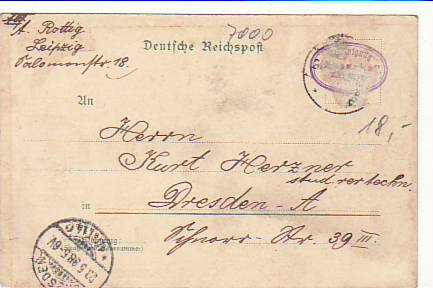 A. Rottig
Leipzig
Salomonstr. 18.
7000
Deutsche Reichspost
An
18,-
Herrn
Kurt Herzner
stud. rer. techn.
in Dresden-A
Schnorr-Str. 39 III.